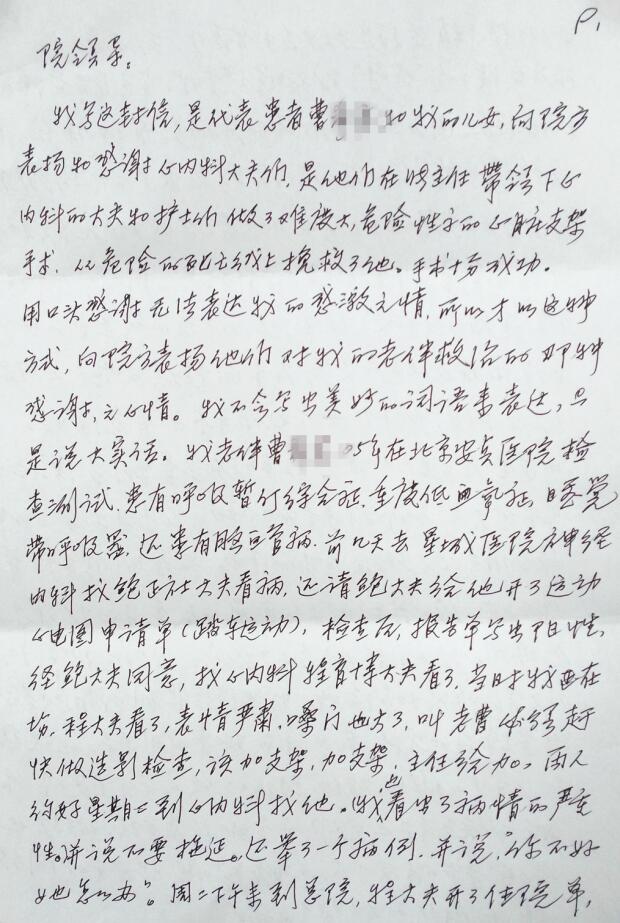 P1
院领导。
我写这封信，是代表患者曹和我的儿女，向院方
表扬和感谢心内科大夫们，是他们在主任带领下心
内科的大夫和护士们做了难度大，危险性高的心脏支架
手术，从危险的死亡线上挽救了他。手术十分成功。
用口头感谢无法表达我的感激之情，所以才以这种
方式，向院方表扬他们对我的老伴救治的那种
感谢之心情。我不会写出美妙的词语来表达，只
是说大实话。我老伴曹05年在北京安贞医院检
查测试，患有呼吸暂停综合征，重度低血氧症，睡觉
带呼吸器，还患有脑血管病，前几天去星城医院神经
内科找鲍正社大夫看病，还请鲍大夫给他开了运动
心电图申请单(踏车运动)，检查后，报告单写出阳性，
经鲍大夫同意，找心内科程育博大夫看了，当时我也在
场，程大夫看了，表情严肃，嗓门也大了，叫老曹必须赶
快做造影检查，该加支架，加支架，主任给加。两人
约好星期二到心内科找他。我也看出了病情的严重
性。并说不要拖延。还举了一个病例，并说，"你不好
她怎么办"。周二下午来到总院，程大夫开了住院单，